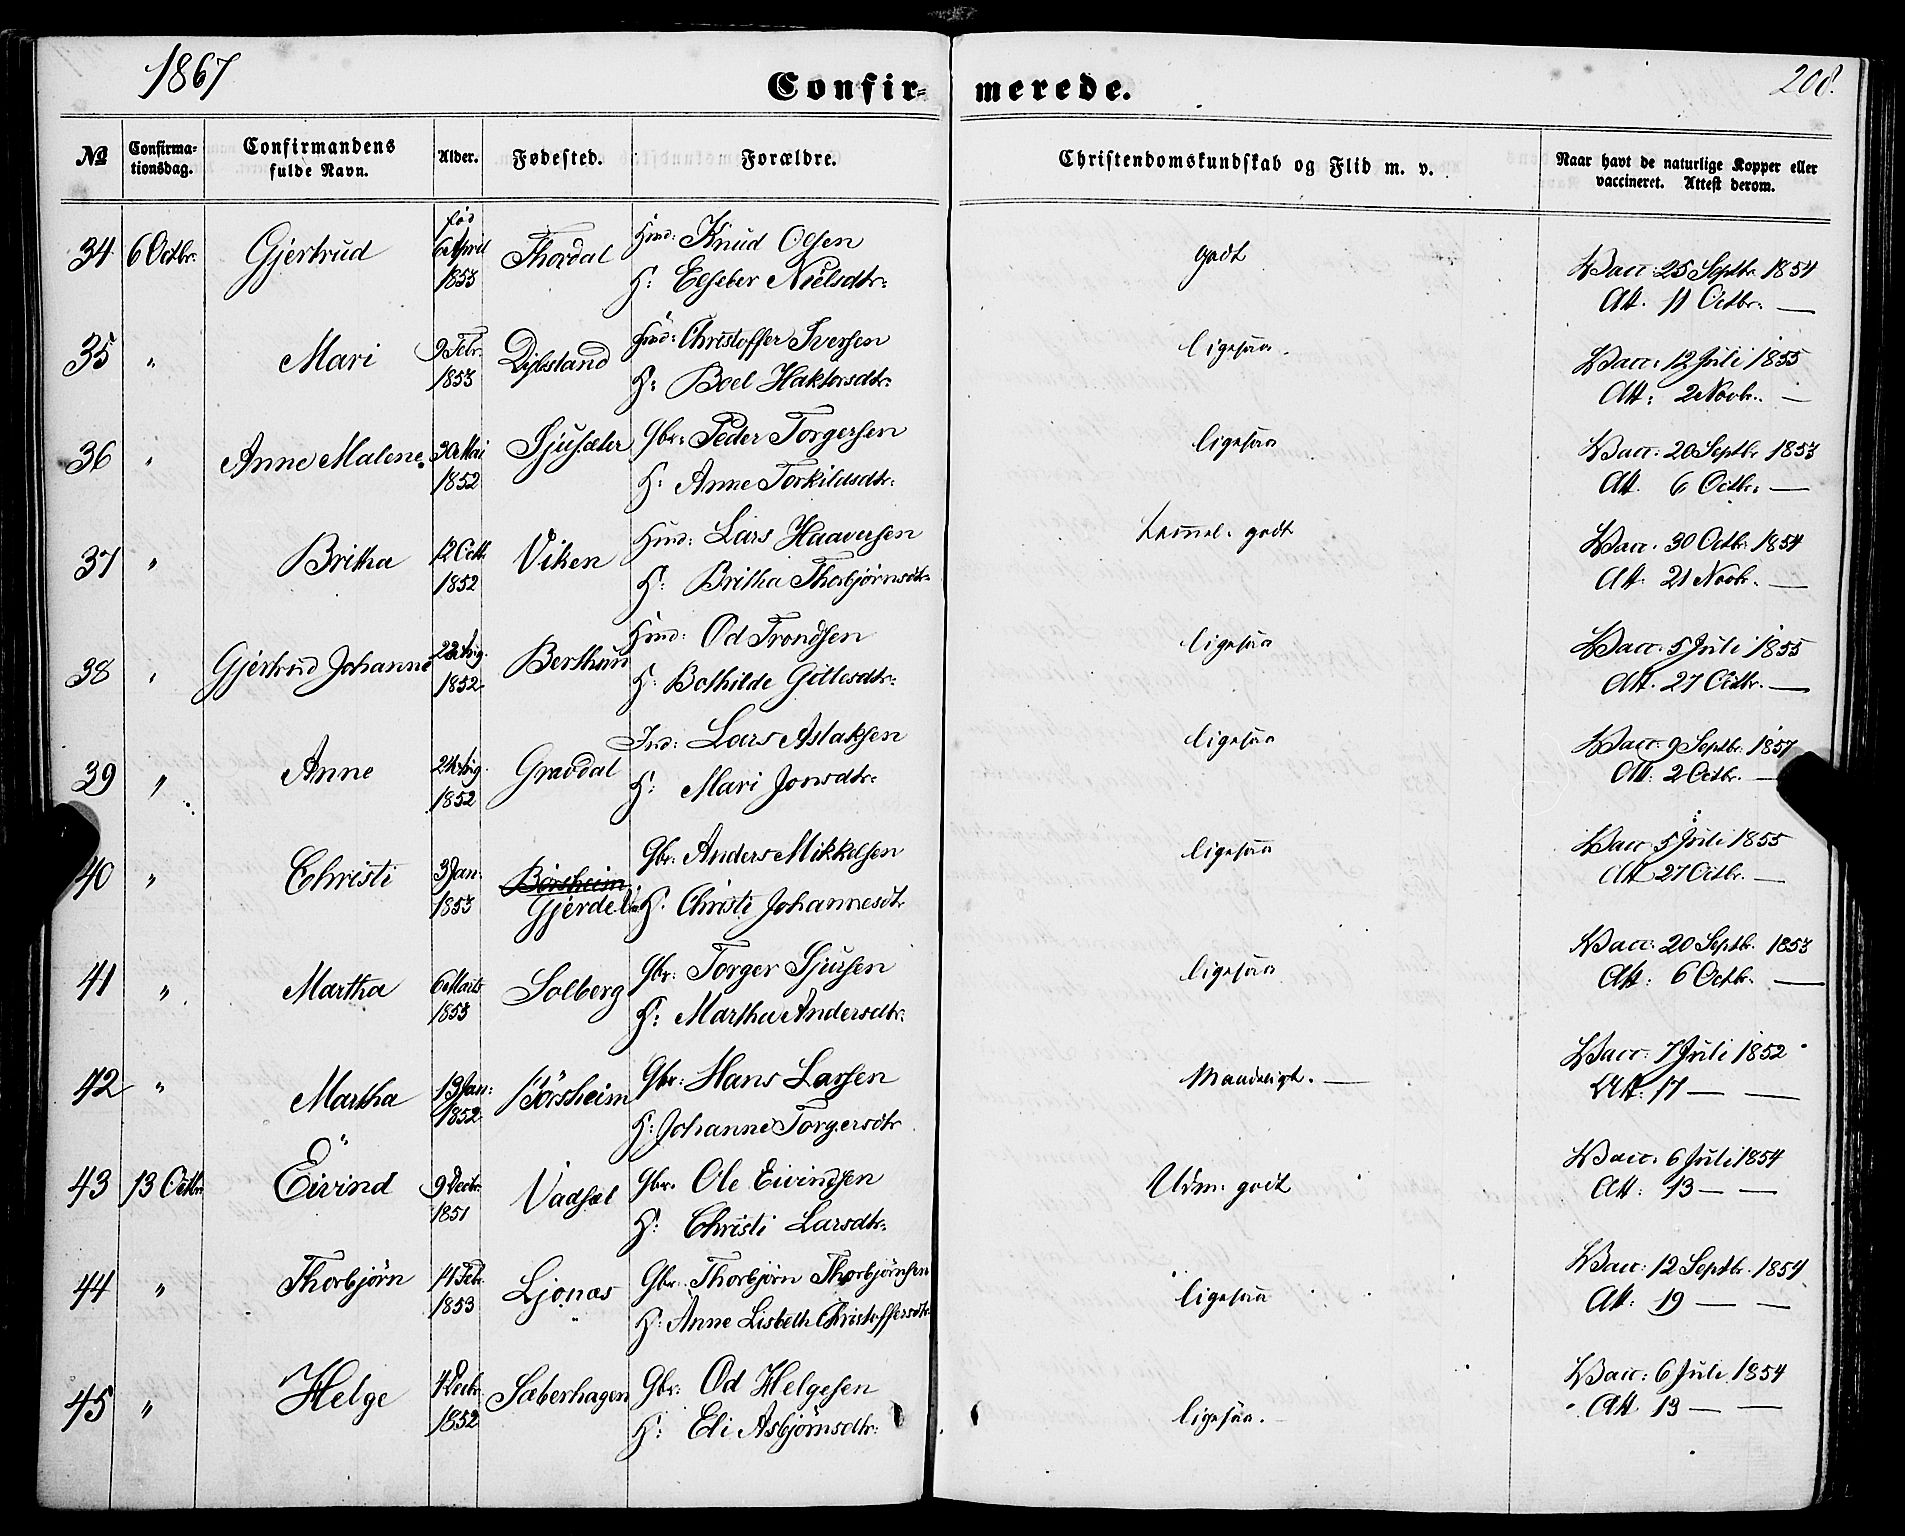 1867
Confir= merede.
208.
No
Confirma=
tionsdag.
Confirmandens
fulde Navn.
Alder.
Fødested.
Forældre.
Christendomskundskab og Flid m. v.
Naar havt de naturlige Kopper eller
vaccineret. Attest derom.
34 6 Octbr. Gjertrud fød 6 April 1853 Thordal Hmd: Knud Olsen godt Vacc: 25 Septbr. 1854
H: Elseber Nielsdtr: Att. 11 Octbr. —
35 " Mari 9 Febr. 1853 Dybsland Hmd: Christoffer Iversen ligesaa. Vacc: 12 Juli 1855
H: Boel Haktorsdtr: Att: 2 Novbr. —
36 " Anne Malene. 30 Mai 1852 Sjusæter Gbr: Peder Torgersen ligesaa Vacc: 20 Septbr 1853
H: Anne Torkildsdtr: Att. 6 Octbr. —
37 " Britha 12 Octb. 1852 Viken Hmd: Lars Haaversen temmel. godt Vacc. 30 Octbr. 1854
H: Britha Thorbjørnsdtr. Att: 21 Novbr. —
38 " Gjertrud Johanne 22 Aug. 1852 Berthun Hmd: Od Trondsen ligesaa Vacc: 5 Juli 1855
H. Bothilde Gittesdtr: Att. 27 Octbr. —
39 " Anne 24 Aug. 1852 Gravdal Ind: Lars Aslaksen ligesaa Vacc. 9 Septbr. 1857
H: Mari Jonsdtr: Att: 2 Octbr. —
40 " Christi 3 Jan: 1853 Börsheim Gbr: Anders Mikkelsen ligesaa Vacc 5 Juli 1855
Gjerde H. Christi Johannesdtr Att 27 Octbr. —
41 " Martha 6 Marts 1853 Solberg Gbr: Torger Sjursen ligesaa Vacc: 20 Septb. 1853
H: Martha Andersdtr: Att: 6 Octbr. —
42 " Martha 13 Jan: 1852 Börsheim Gbr: Hans Larsen Maadeligt. — Vacc: 7 Juli 1852
H: Johanne Torgersdtr Att: 17 — —
43 13 Octbr. Eivind 9 Decbr. 1851 Vadsel Gbr. Ole Eivindsen Udm: godt Vacc. 6 Juli 1854
H: Christi Larsdtr: Att: 13 — —
44 " Thorbjørn 14 Feb. 1853 Ljonæs Gbr: Thorbjørn Thorbjörnsen ligesaa Vacc: 12 Septbr. 1854
H: Anne Lisbeth Christoffersdtr. Att: 19 — —
45 " Helge 4 Decbr. 1852 Sæberhagen Gbr: Od Helgesen ligesaa. Vacc: 6 Juli 1854
H: Eli Asbjørnsdtr: Att 13 — —